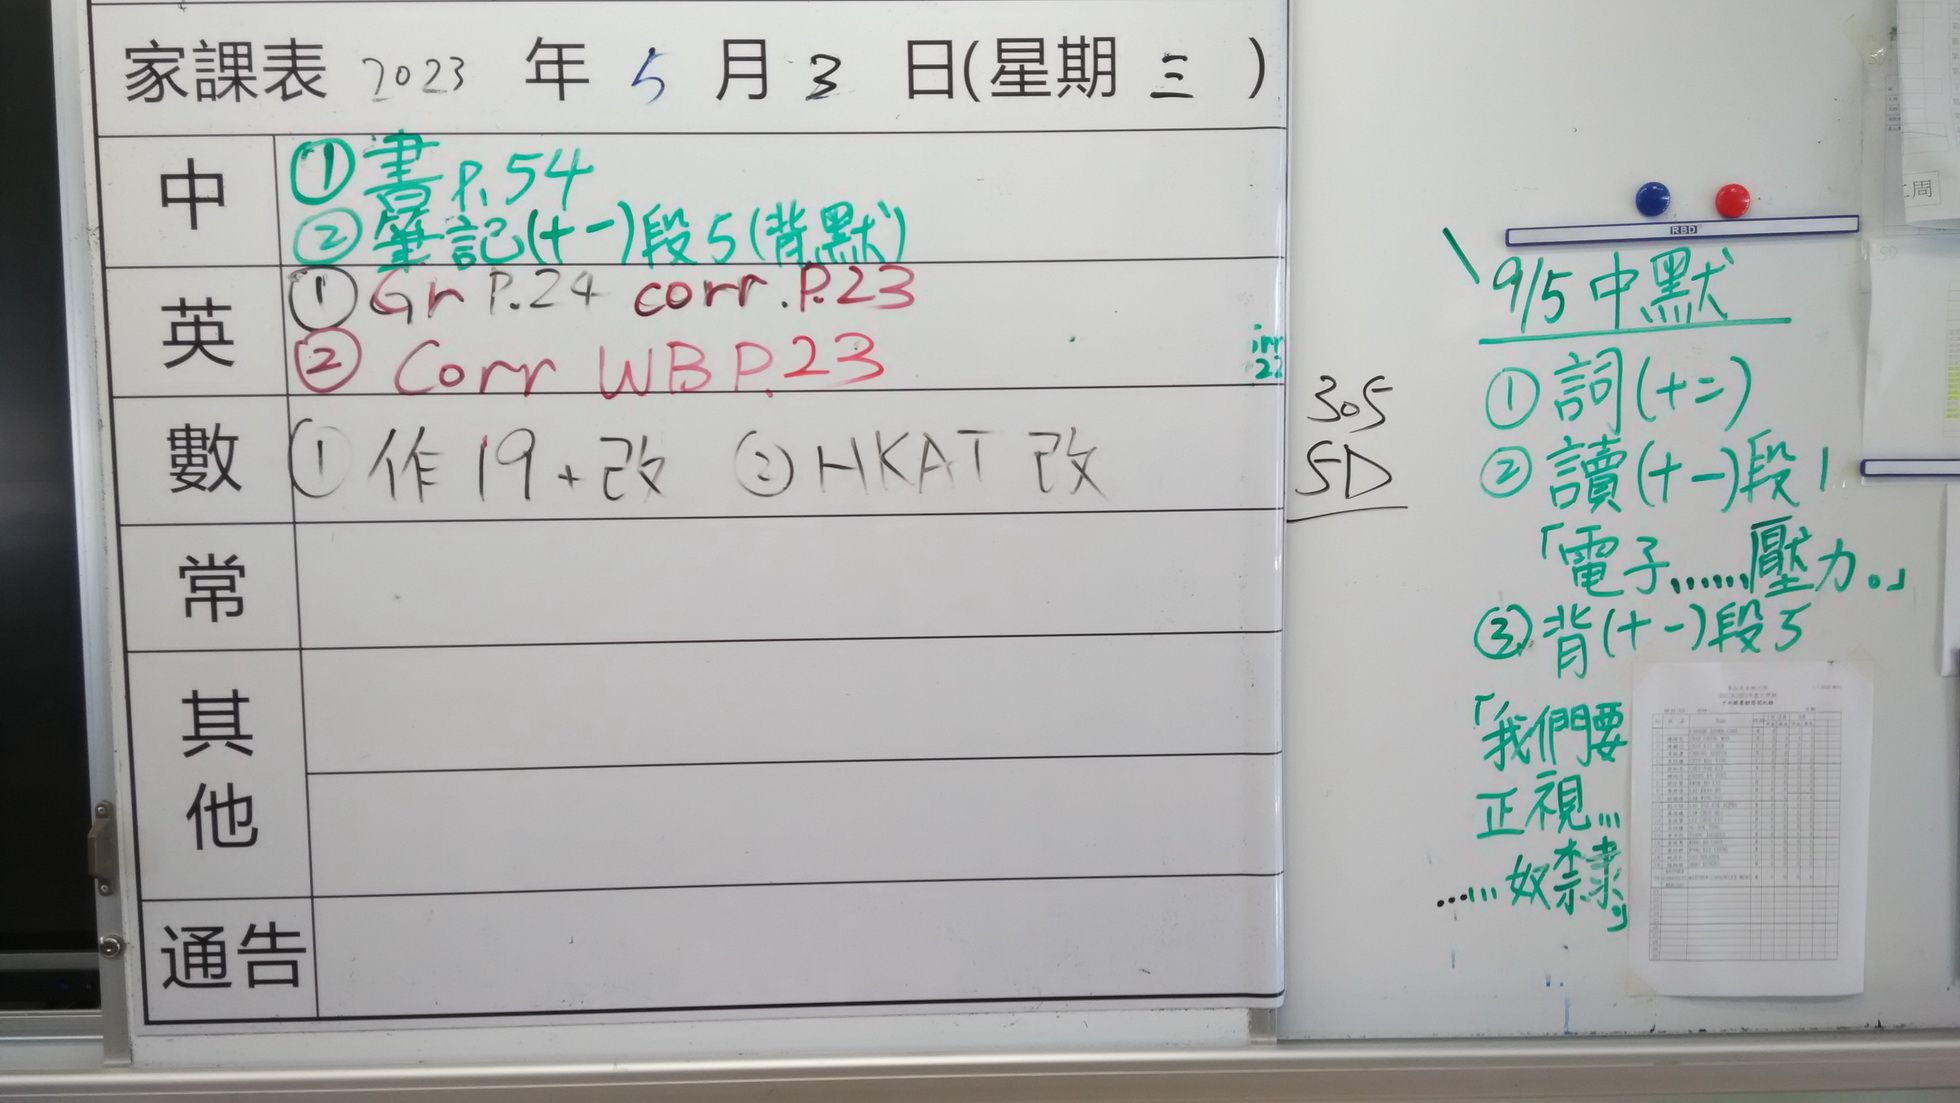 家課表 2023 年 5 月 3 日(星期 三 )
中
①書P.54
②筆記(十一)段5(背默)
英
①Gr P.24 corr.P.23
②Corr WB P.23
數
①作19+改 ②HKAT改
常
其他
通告
305
5D
RBD
9/5中默
①詞(十二)
②讀(十一)段1
「電子......壓力。」
③背(十一)段5
「我們要
正視...
......奴隸」